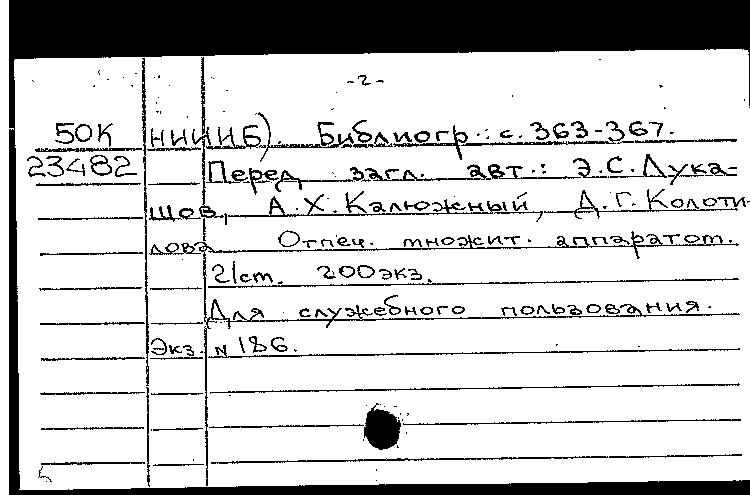 -2-
50К НИИИБ). Библиогр.: с. 363-367.
23482 Перед загл. авт.: Э.С.Лука-
шов, А.Х.Калюжный, Д.Г.Колоти-
лова Отпеч. множит. аппаратом.
200экз.
Для служебного пользования.
Экз. N 186.